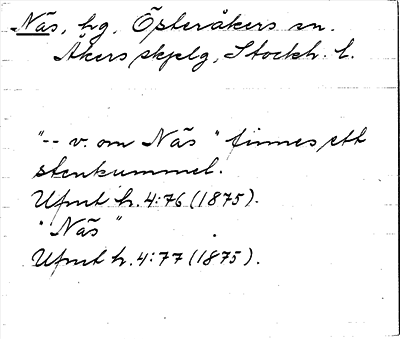 Näs, hg, Österåkers sn.
Åkers skplg, Stockh. l.
"-- v. om Näs" finnes ett
stenkummel.
Ufmt h. 4:76 (1875).
"Näs"
Ufmt h. 4:77 (1875).